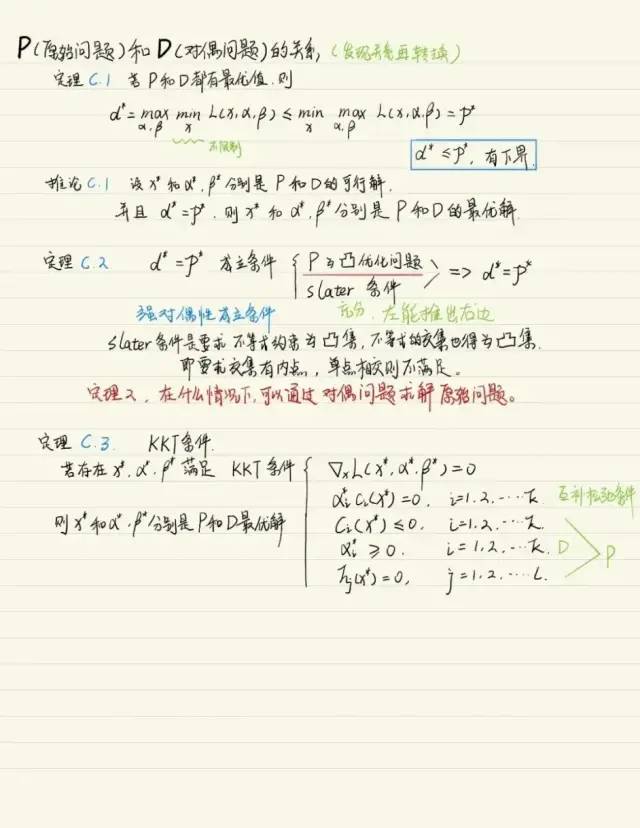 P(原始问题)和D(对偶问题)的关系,(发现关系再转换)
定理C.1 若P和D都有最优值.则
d*=max min L(x,α,β)≤min max L(x,α,β)=p*
α,β x x α,β
不限制
d*≤p*,有下界.
推论C.1 设x*和α*,β*分别是P和D的可行解.
并且d*=p*.则x*和α*,β*分别是P和D的最优解.
定理C.2 d*=p* 成立条件 { P为凸优化问题 => d*=p*
slater 条件
强对偶性成立条件 充分,左能推出右边
slater条件是要求不等式约束为凸集,不等式的交集也得为凸集.
即要求交集有内点,单点相交则不满足。
定理2,在什么情况下,可以通过对偶问题求解原始问题。
定理C.3. KKT条件.
若存在x*,α*,β*满足 KKT条件 { ∇ₓL(x*,α*,β*)=0
αᵢ*cᵢ(x*)=0, i=1,2,……k 互补松弛条件
则x*和α*,β*分别是P和D最优解 cᵢ(x*)≤0, i=1,2,……k.
αᵢ*≥0, i=1,2,……k. D
P
hⱼ(x*)=0, j=1,2,……l.